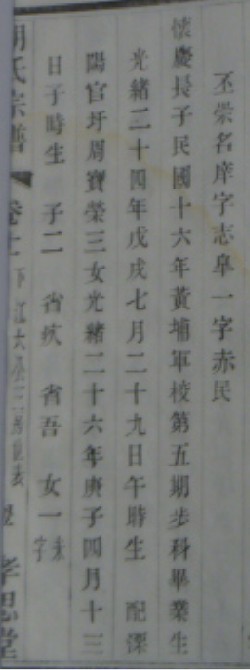 丕崇名庠字志臯一字赤民
懷慶長子民國十六年黃埔軍校第五期步科畢業生
光緒二十四年戊戌七月二十九日午時生 配溧
陽官圩周寶榮三女光緒二十六年庚子四月十三
日子時生 子二 省 省吾 女一
胡氏宗譜 卷十 孝思堂